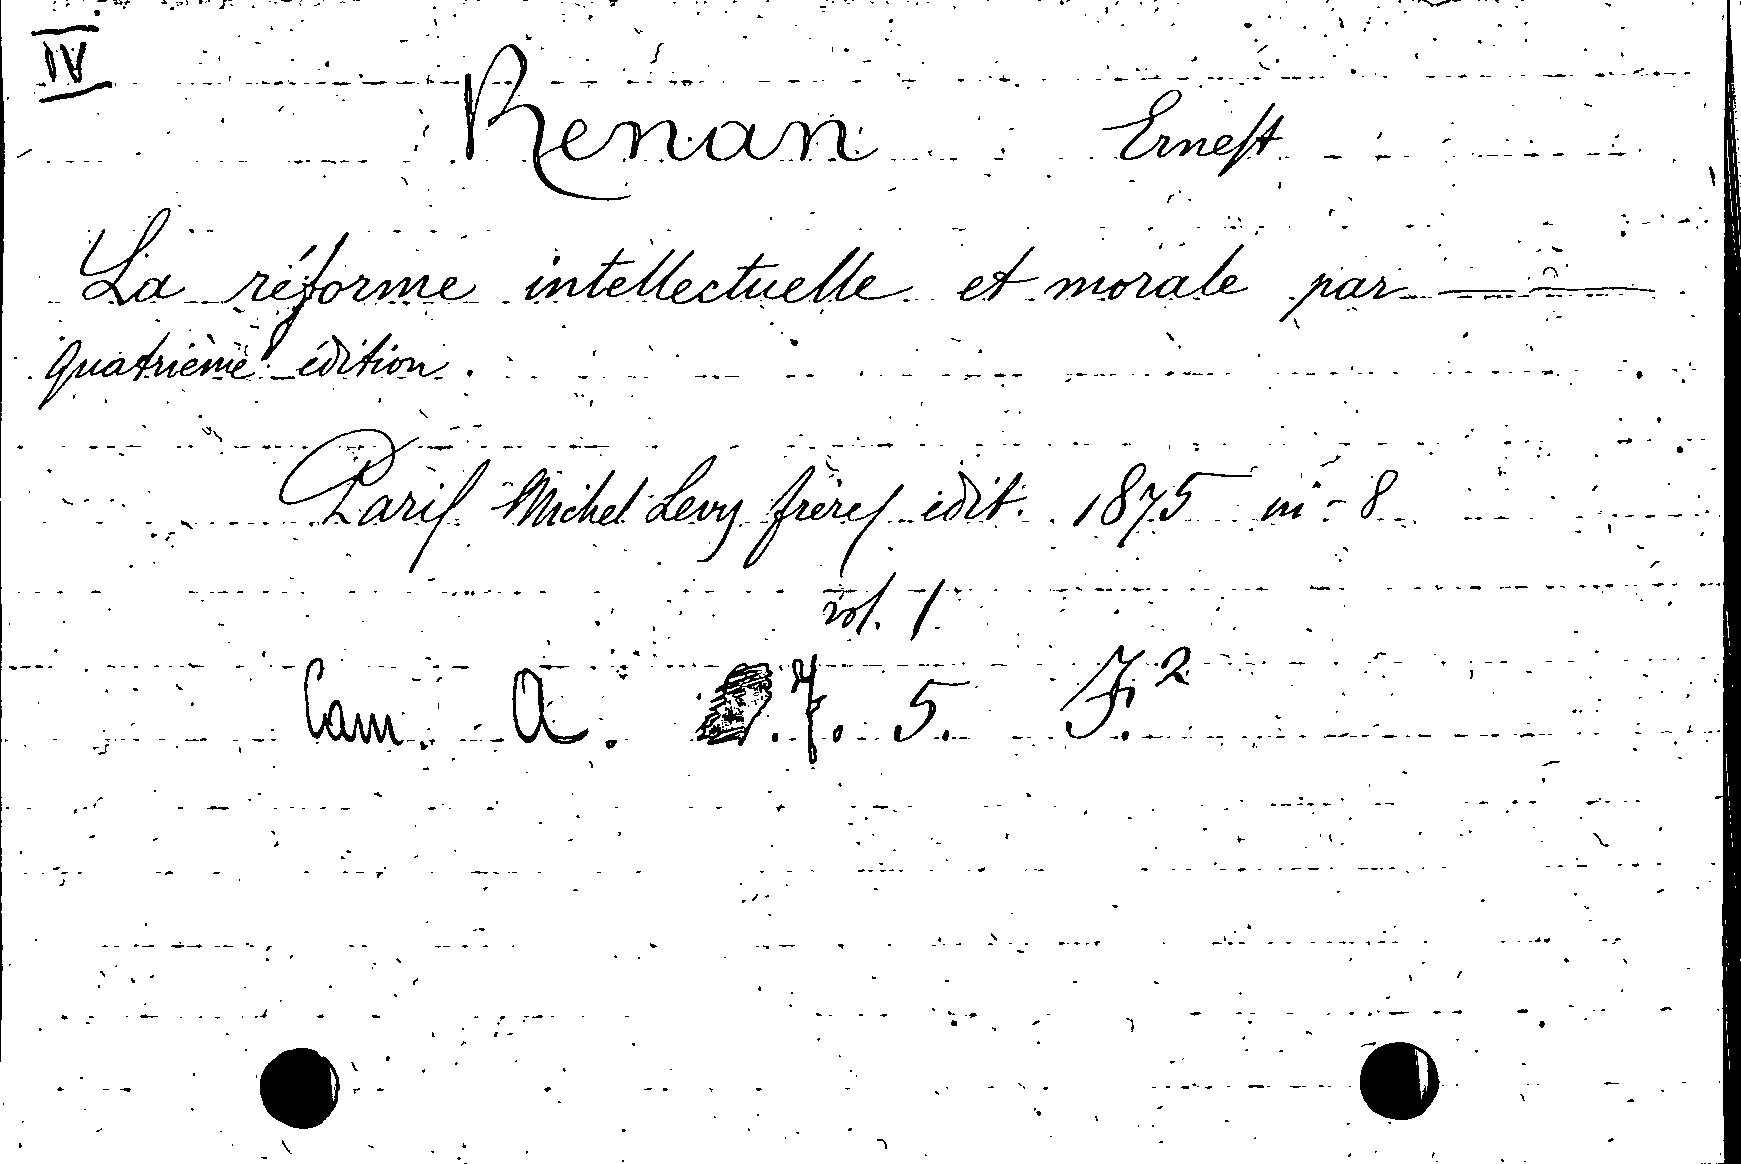 IV
Renan Ernest
La réforme intellectuelle et morale par ——
quatrième édition.
Paris Michel Levy frères édit. 1875 in-8
vol. 1
Cam. A. 7. 5. F.2